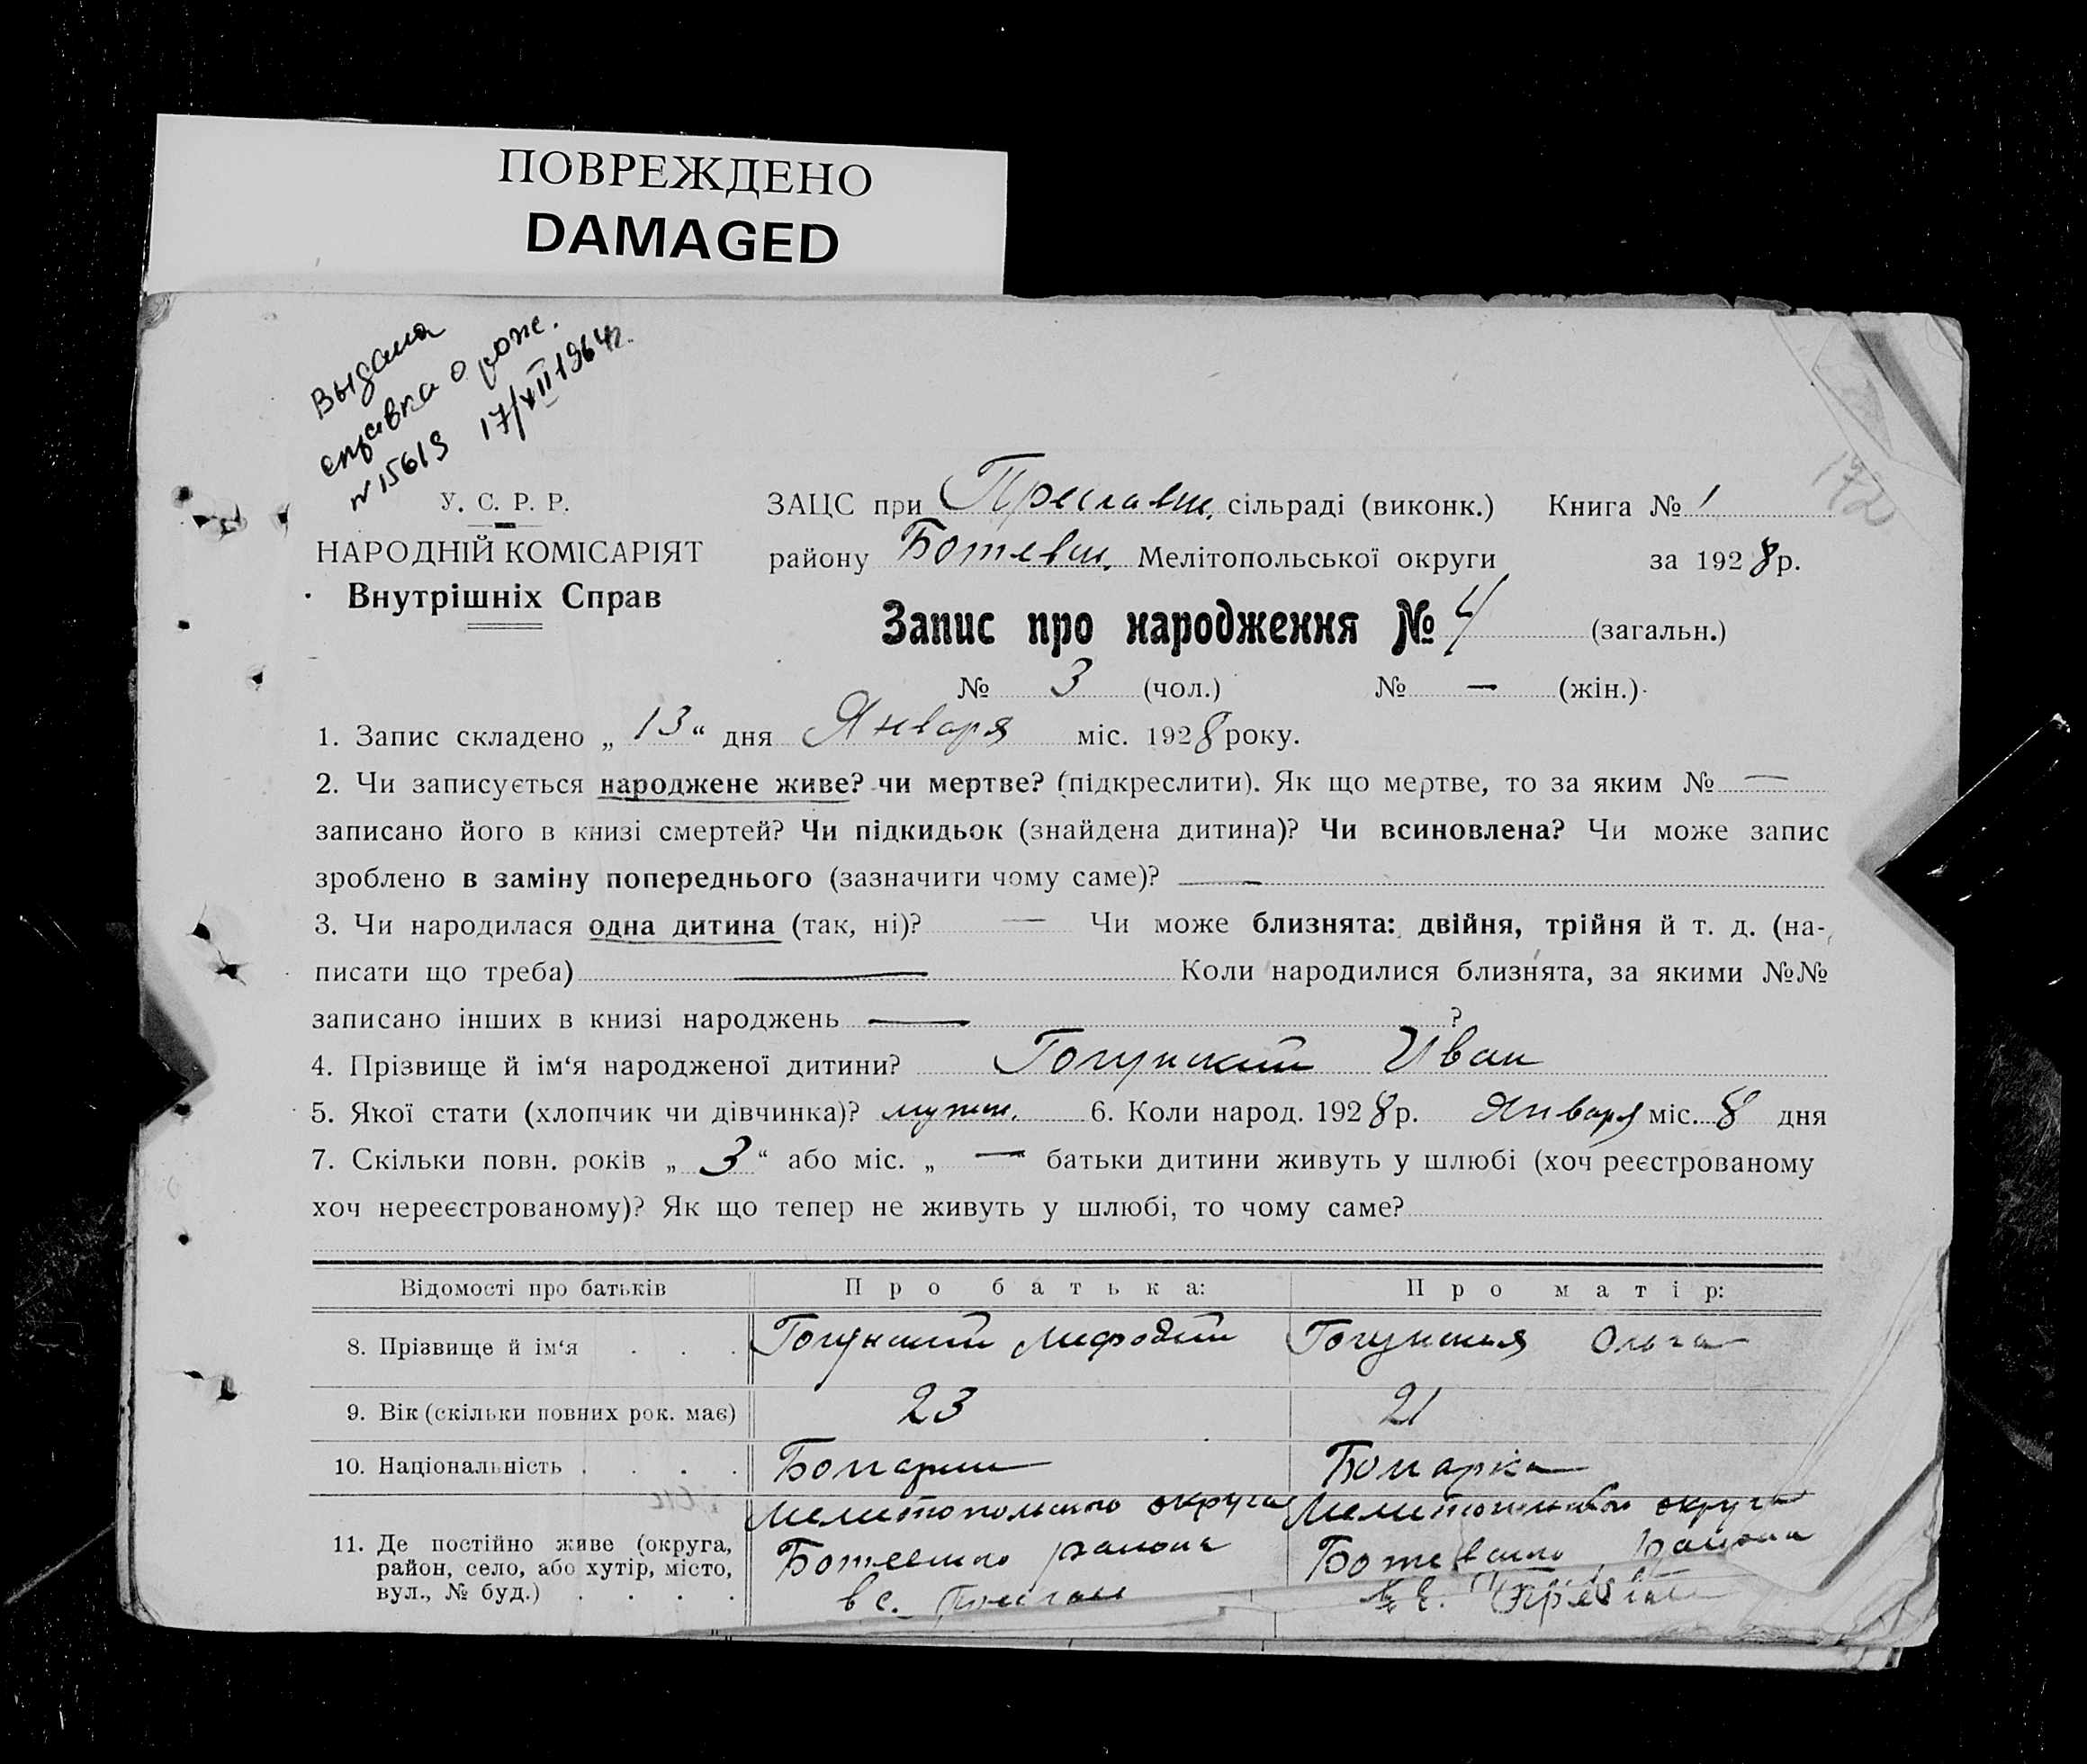 ПОВРЕЖДЕНО
DAMAGED
Выдана
справка о рож.
№ 15619 17/XII 1964г.
172
У. С. Р. Р.
НАРОДНІЙ КОМІСАРІЯТ
Внутрішніх Справ
ЗАЦС при Преславск. сільраді (виконк.) Книга № 1
району Ботевск. Мелітопольської округи за 1928 р.
Запис про народження № 4 (загальн.)
№ 3 (чол.) № — (жін.)
1. Запис складено „ 13 “ дня Января міс. 1928 року.
2. Чи записується народжене живе? чи мертве? (підкреслити). Як що мертве, то за яким № —
записано його в книзі смертей? Чи підкидьок (знайдена дитина)? Чи всиновлена? Чи може запис
зроблено в заміну попереднього (зазначити чому саме)? —
3. Чи народилася одна дитина (так, ні)? — Чи може близнята: двійня, трійня й т. д. (на-
писати що треба) — Коли народилися близнята, за якими №№
записано інших в книзі народжень — ?
4. Прізвище й ім‘я народженої дитини? Гогунский Иван
5. Якої стати (хлопчик чи дівчинка)? мужск. 6. Коли народ. 1928 р. Января міс. 8 дня
7. Скільки повн. років „ 3 “ або міс. „ — “ батьки дитини живуть у шлюбі (хоч реєстрованому
хоч нереєстрованому)? Як що тепер не живуть у шлюбі, то чому саме?
Відомості про батьків Про батька: Про матір:
8. Прізвище й ім‘я . . . Гогунский Мефодий Гогунская Ольга
9. Вік (скільки повних рок. має) 23 21
10. Національність . . . . Болгарин Болгарка
Мелитопольского округа Мелитопольского округа
11. Де постійно живе (округа,
район, село, або хутір, місто,
вул., № буд.) . . . .
Ботевского района Ботевского района
в с. Преслав в с. Преслав